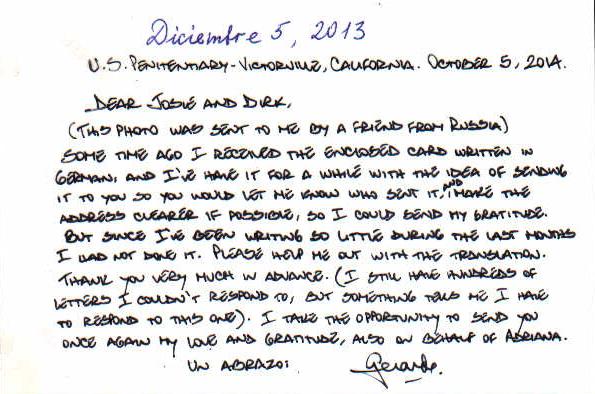 Diciembre 5, 2013
U.S. PENITENTIARY-VICTORVILLE, CALIFORNIA. OCTOBER 5, 2014.
DEAR JOSIE AND DIRK,
(THIS PHOTO WAS SENT TO ME BY A FRIEND FROM RUSSIA)
SOME TIME AGO I RECEIVED THE ENCLOSED CARD WRITTEN IN
GERMAN, AND I'VE HAVE IT FOR A WHILE WITH THE IDEA OF SENDING
IT TO YOU SO YOU WOULD LET ME KNOW WHO SENT IT, AND MAKE THE
ADDRESS CLEARER IF POSSIBLE, SO I COULD SEND MY GRATITUDE.
BUT SINCE I'VE BEEN WRITING SO LITTLE DURING THE LAST MONTHS
I HAD NOT DONE IT. PLEASE HELP ME OUT WITH THE TRANSLATION.
THANK YOU VERY MUCH IN ADVANCE. (I STILL HAVE HUNDREDS OF
LETTERS I COULDN'T RESPOND TO, BUT SOMETHING TELLS ME I HAVE
TO RESPOND TO THIS ONE). I TAKE THE OPPORTUNITY TO SEND YOU
ONCE AGAIN MY LOVE AND GRATITUDE, ALSO ON BEHALF OF ADRIANA.
UN ABRAZO: Gerardo.